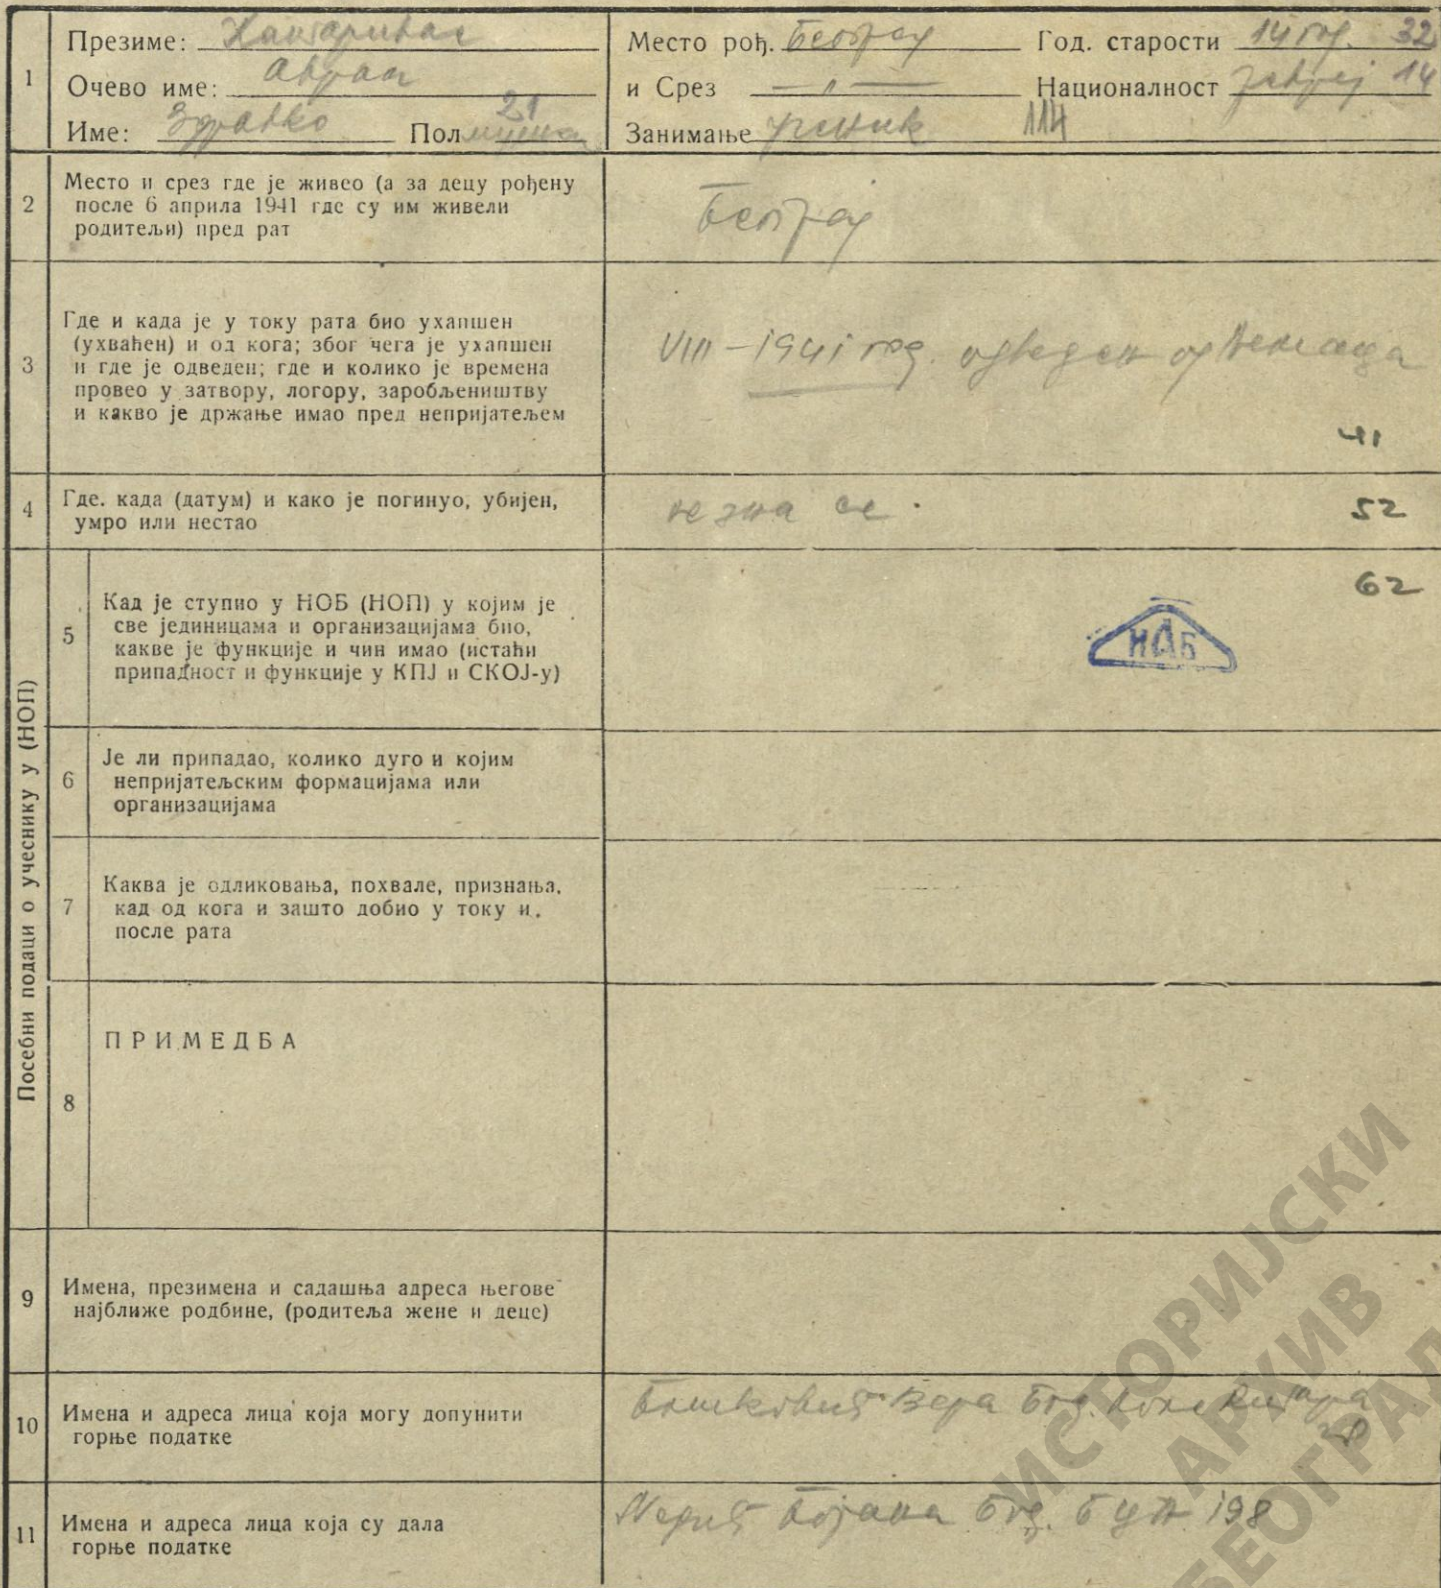 1
Презиме: Кантаривас
Очево име: Аврам
Име: Здравко Пол мушки 21
Место рођ. Београд Год. старости 14 год. 32
и Срез —"— Националност јевреј 14
Занимање ученик 114
2
Место и срез где је живео (а за децу рођену
после 6 априла 1941 где су им живели
родитељи) пред рат
Београд
3
Где и када је у току рата био ухапшен
(ухваћен) и од кога; због чега је ухапшен
и где је одведен; где и колико је времена
провео у затвору, логору, заробљеништву
и какво је држање имао пред непријатељем
VIII – 1941 год. одведен од Немаца
41
4
Где. када (датум) и како је погинуо, убијен,
умро или нестао
не зна се.
52
Посебни подаци о учеснику у (НОП)
5
Кад је ступио у НОБ (НОП) у којим је
све јединицама и организацијама био,
какве је функције и чин имао (истаћи
припадност и функције у КПЈ и СКОЈ-у)
62
ИАБ
6
Је ли припадао, колико дуго и којим
непријатељским формацијама или
организацијама
7
Каква је одликовања, похвале, признања.
кад од кога и зашто добио у току и.
после рата
8
ПРИМЕДБА
9
Имена, презимена и садашња адреса његове
најближе родбине, (родитеља жене и деце)
10
Имена и адреса лица која могу допунити
горње податке
Бошковић Вера Бгд.
28
11
Имена и адреса лица која су дала
горње податке
Бојана Бгд. 198
ИСТОРИЈСКИ
АРХИВ
БЕОГРАД